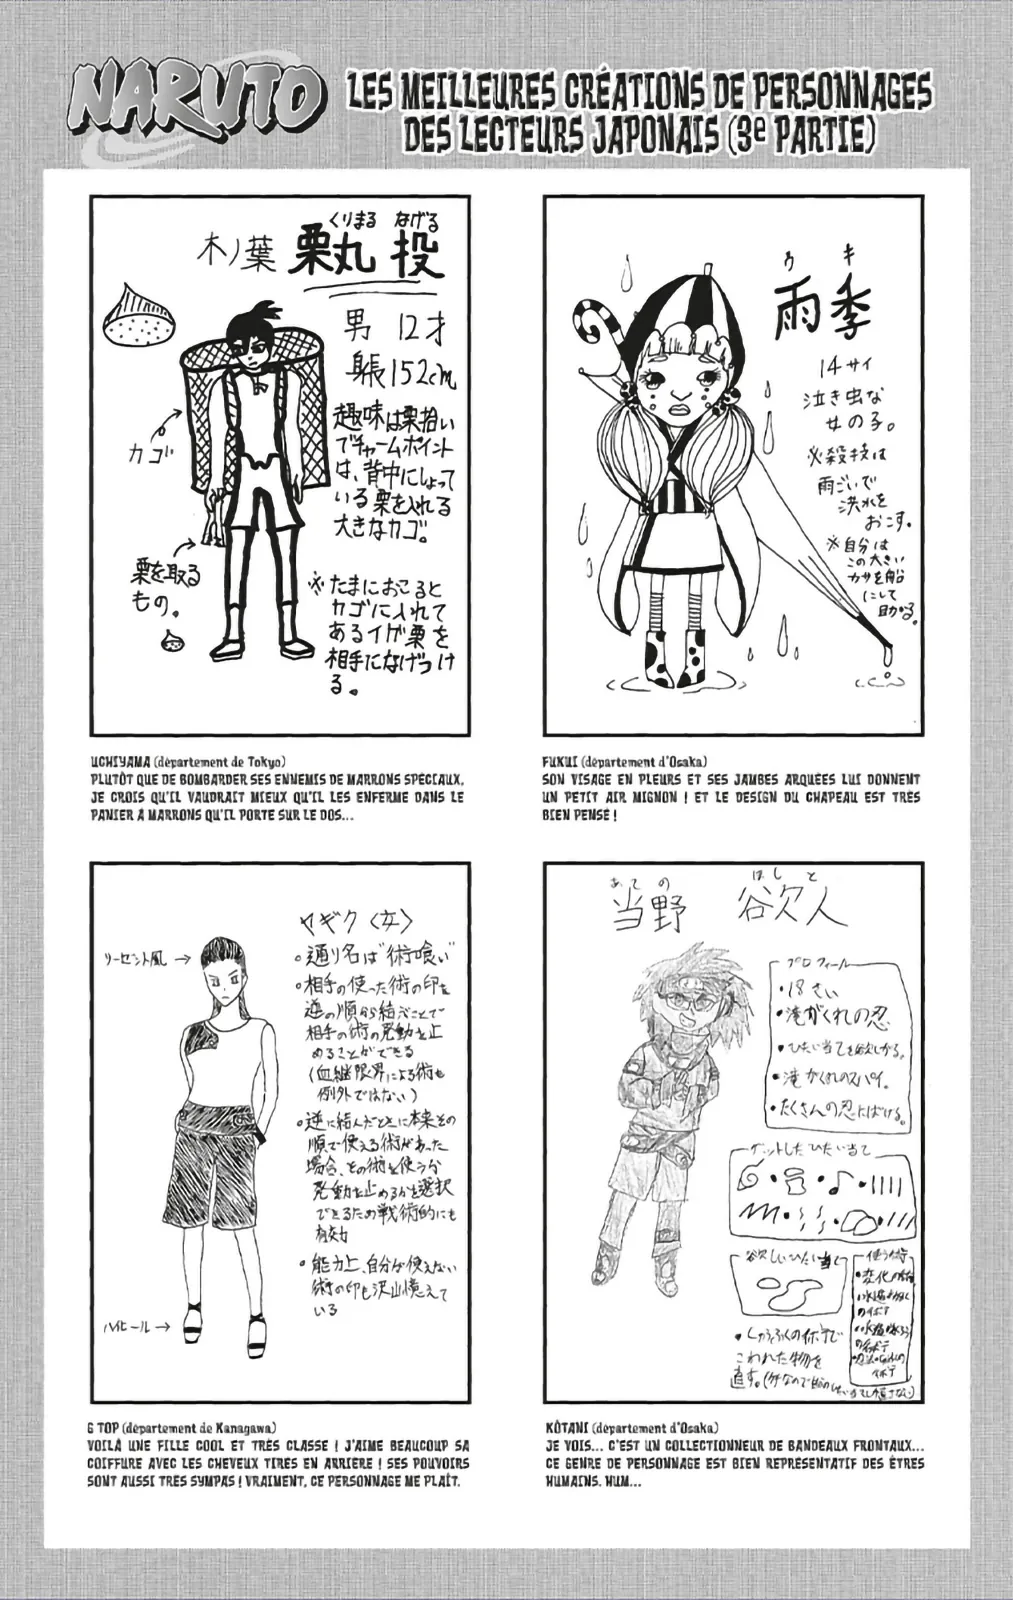 NARUTO
LES MEILLEURES CRÉATIONS DE PERSONNAGES
DES LECTEURS JAPONAIS (3e PARTIE)
くりまる なげる
木ノ葉 栗丸 投
男 12才
身長152cm
趣味は栗拾い
でチャームポイント
は、背中にしょって
いる栗を入れる
大きなカゴ。
カゴ
栗を取る
もの。
※たまにおこると
カゴに入れて
あるイガ栗を
相手になげつけ
る。
UCHIYAMA (département de Tokyo)
PLUTÔT QUE DE BOMBARDER SES ENNEMIS DE MARRONS SPÉCIAUX,
JE CROIS QU'IL VAUDRAIT MIEUX QU'IL LES ENFERME DANS LE
PANIER À MARRONS QU'IL PORTE SUR LE DOS...
ウ キ
雨季
14サイ
泣き虫な
女の子。
必殺技は
雨ごいで
洪水を
おこす。
※自分は
この大きい
カサを船
にして
助かる。
FUKUI (département d'Osaka)
SON VISAGE EN PLEURS ET SES JAMBES ARQUÉES LUI DONNENT
UN PETIT AIR MIGNON ! ET LE DESIGN DU CHAPEAU EST TRÈS
BIEN PENSÉ !
ヤギク〈女〉
リーゼント風 →
○通り名は"術喰い"
○相手の使った術の印を
逆の順から結ぶことで
相手の術の発動を止
めることができる
(血継限界による術も
例外ではない)
○逆に結んだときに本来その
順で使える術があった
場合、その術を使うか
発動を止めるかを選択
できるため戦術的にも
有効
○能力上、自分が使えない
術の印も沢山憶えて
いる
ハイヒール →
G TOP (département de Kanagawa)
VOILÀ UNE FILLE COOL ET TRÈS CLASSE ! J'AIME BEAUCOUP SA
COIFFURE AVEC LES CHEVEUX TIRÉS EN ARRIÈRE ! SES POUVOIRS
SONT AUSSI TRÈS SYMPAS ! VRAIMENT, CE PERSONNAGE ME PLAÎT.
あての ほしと
当野 欲人
プロフィール
・18さい
・滝がくれの忍
・ひたい当てを欲しがる。
・滝がくれのスパイ。
・たくさんの忍にばける。
ゲットしたひたい当て
欲しいひたい当て
使う術
・変化の術
・しゅうふくの術で
こわれた物を
直す。
KÔTANI (département d'Osaka)
JE VOIS... C'EST UN COLLECTIONNEUR DE BANDEAUX FRONTAUX...
CE GENRE DE PERSONNAGE EST BIEN REPRÉSENTATIF DES ÊTRES
HUMAINS. HUM...